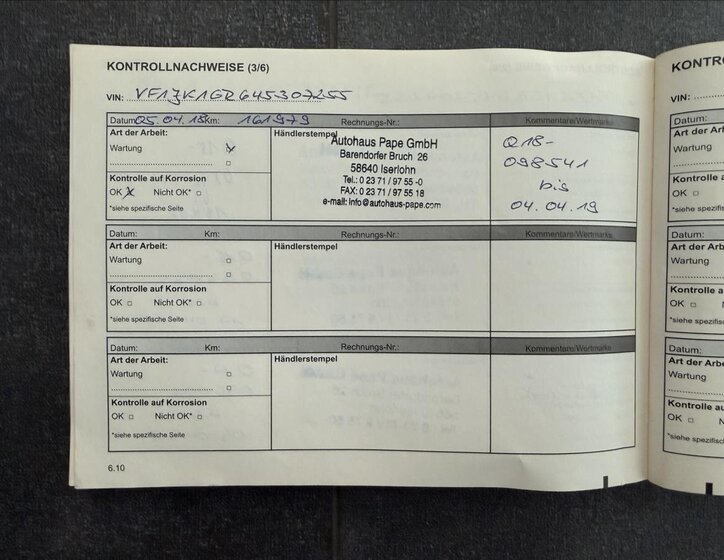 KONTROLLNACHWEISE (3/6)
VIN: VF1JK1GR645307255
Datum: 05.04.18 km: 161979 Rechnungs-Nr.: Kommentare/Wertmarke
Art der Arbeit: Händlerstempel
Wartung x
Autohaus Pape GmbH
Barendorfer Bruch 26
58640 Iserlohn
Tel.: 0 23 71 / 97 55 -0
FAX: 0 23 71 / 97 55 18
e-mail: info@autohaus-pape.com
Q18-
098541
bis
04.04.19
Kontrolle auf Korrosion
OK x Nicht OK*
*siehe spezifische Seite
Datum: Km: Rechnungs-Nr.: Kommentare/Wertmarke
Art der Arbeit: Händlerstempel
Wartung
Kontrolle auf Korrosion
OK Nicht OK*
*siehe spezifische Seite
Datum: Km: Rechnungs-Nr.: Kommentare/Wertmarke
Art der Arbeit: Händlerstempel
Wartung
Kontrolle auf Korrosion
OK Nicht OK*
*siehe spezifische Seite
6.10
KONTRO
VIN:
Datum:
Art der Arb
Wartung
Kontrolle a
OK
*siehe spezif
Datum:
Art der Arb
Wartung
Kontrolle a
OK
*siehe spezifi
Datum:
Art der Arb
Wartung
Kontrolle a
OK N
*siehe spezifis